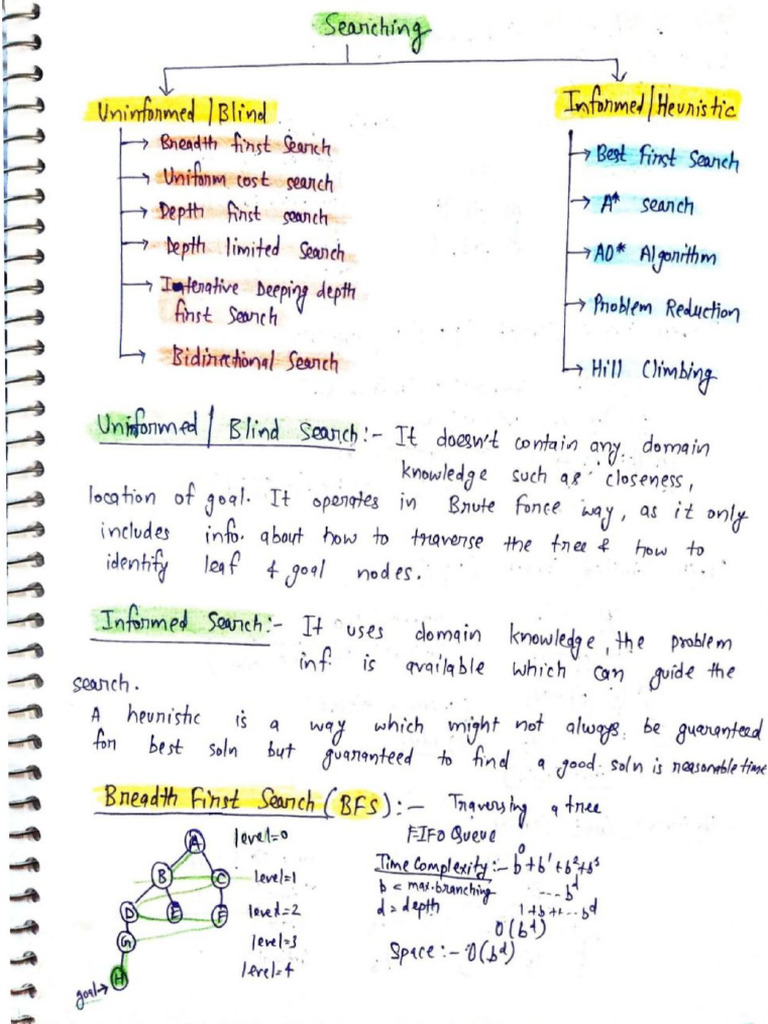 Searching
Uninformed / Blind
Breadth first Search
Uniform cost search
Depth first search
Depth limited Search
Interative Deeping depth
first Search
Bidirectional Search
Informed / Heuristic
Best First Search
A* search
AO* Algorithm
Problem Reduction
Hill Climbing
Uninformed / Blind Search:- It doesn't contain any domain
knowledge such as closeness,
location of goal. It operates in Brute Force way, as it only
includes info. about how to traverse the tree & how to
identify leaf & goal nodes.
Informed Search:- It uses domain knowledge, the problem
inf. is available which can guide the
search.
A heuristic is a way which might not always be guaranteed
for best soln but guaranteed to find a good soln is reasonable time
Breadth First Search (BFS):- Traversing a tree
FIFO Queue
A level=0
B C level=1
D E F level=2
G level=3
goal→ H level=4
Time Complexity:- b⁰+b¹+b²+b³
----b^d
b < max. branching
d = depth
1+b++---b^d
O(b^d)
Space:- O(b^d)